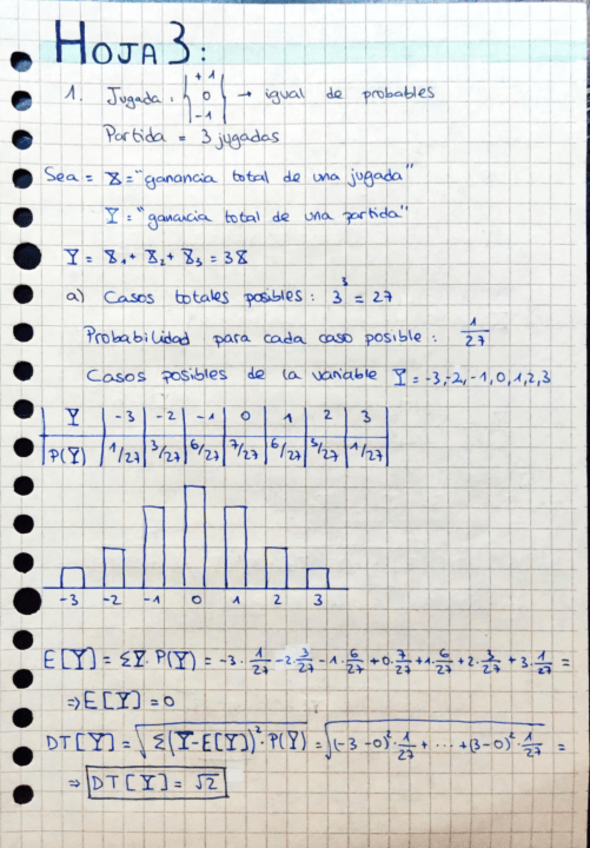 HOJA 3:
1. Jugada: { +1 0 -1 } → igual de probables
Partida = 3 jugadas
Sea = X = "ganancia total de una jugada"
Y = "ganancia total de una partida"
Y = X₁ + X₂ + X₃ = 3X
a) Casos totales posibles: 3³ = 27
Probabilidad para cada caso posible: 1/27
Casos posibles de la variable Y = -3,-2,-1,0,1,2,3
Y -3 -2 -1 0 1 2 3
P(Y) 1/27 3/27 6/27 7/27 6/27 3/27 1/27
-3 -2 -1 0 1 2 3
E[Y] = ΣY·P(Y) = -3·1/27 -2·3/27 -1·6/27 +0·7/27 +1·6/27 +2·3/27 +3·1/27 =
⇒ E[Y] = 0
DT[Y] = √(Σ(Y-E[Y])²·P(Y)) = √((-3-0)²·1/27 + ··· + (3-0)²·1/27) =
⇒ DT[Y] = √2